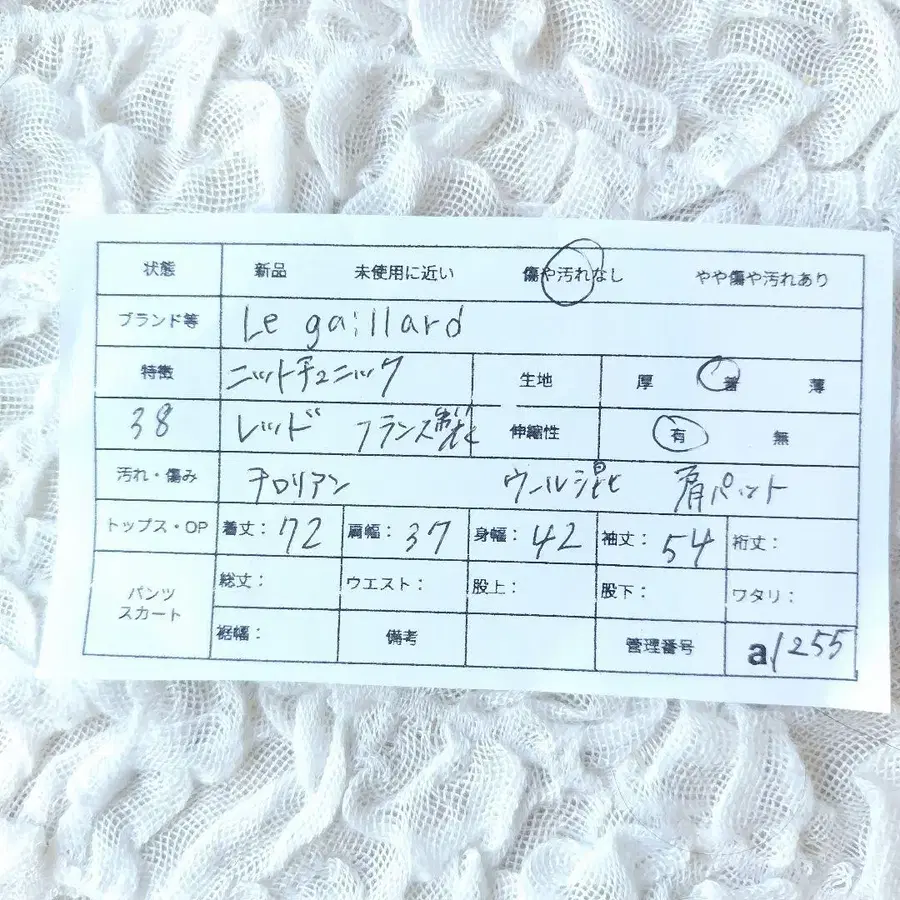 状態 新品 未使用に近い 傷や汚れなし やや傷や汚れあり
ブランド等 Le gaillard
特徴 ニットチュニック 生地 厚 普 薄
38 レッド フランス製 伸縮性 有 無
汚れ・傷み チロリアン ウール混 肩パット
トップス・OP 着丈：72 肩幅：37 身幅：42 袖丈：54 裄丈：
パンツ スカート 総丈： ウエスト： 股上： 股下： ワタリ：
裾幅： 備考 管理番号 a1255